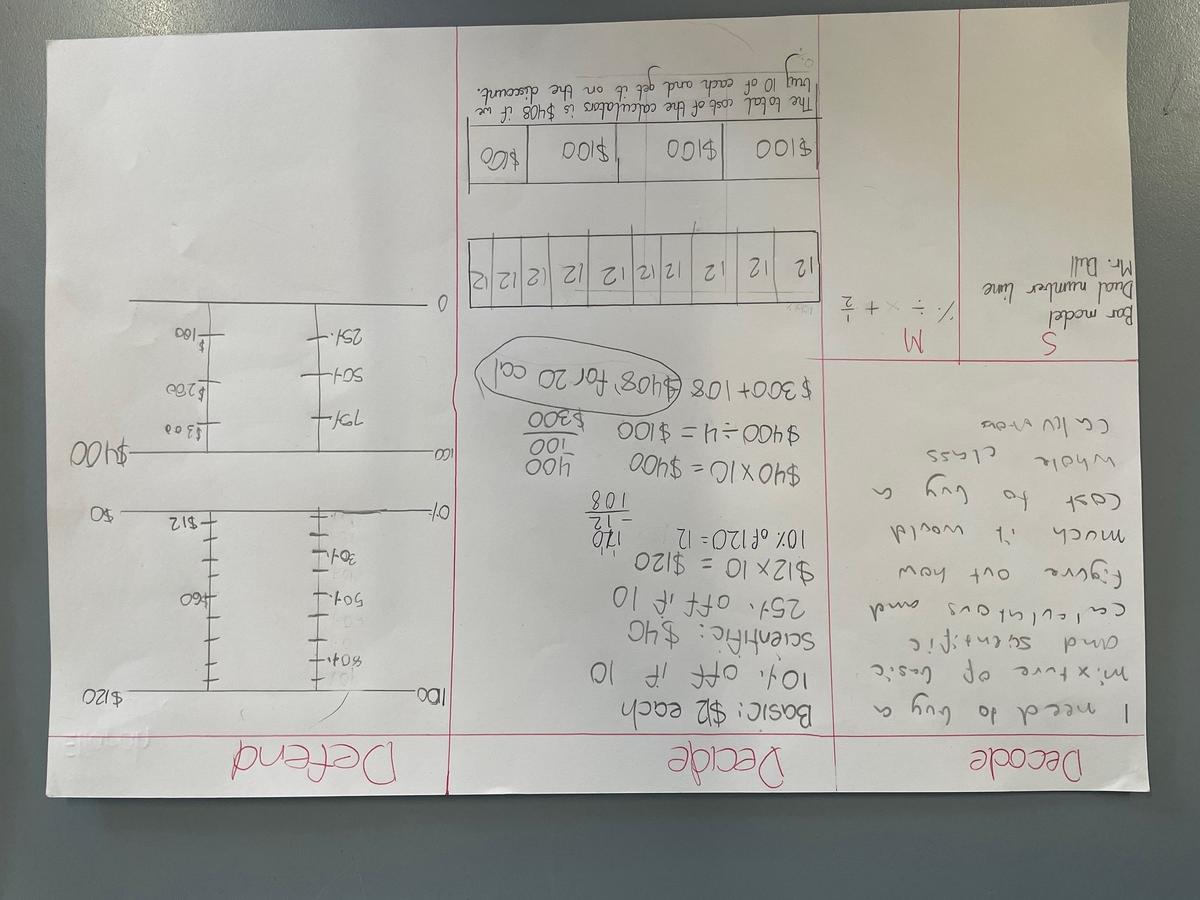 Decode
I need to buy a
mixture of basic
and scientific
calculators and
figure out how
much it would
cost to buy a
whole class
S
Bar model
Dual number line
Mr. Dull
M
% ÷ × + 1/2
Decide
Basic: $12 each
10% off if 10
Scientific: $40
25% off if 10
$12×10 = $120
10% of 120=12
120
- 12
108
$40×10 = $400
$400÷4 = $100
400
-100
$300
$300+108 $408 for 20 cal
12 12 12 12 12 12 12 12 12 12
$100 $100 $100 $100
The total cost of the calculators is $408 if we
buy 10 of each and get it on the discount.
Defend
100 $120
80%
50% $60
30%
$12
0% $0
100 $400
75% $300
50% $200
25% $100
0